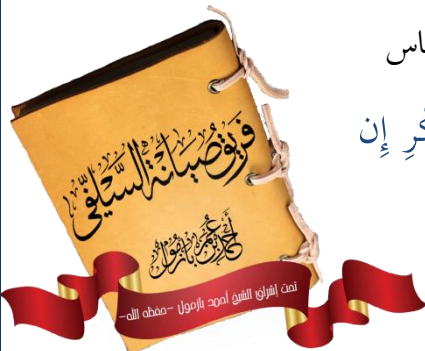 اس
كْرِ إِن
فريق صيانة السلفي
أحمد بن عمر بازمول
تحت إشراف الشيخ أحمد بازمول -حفظه الله-